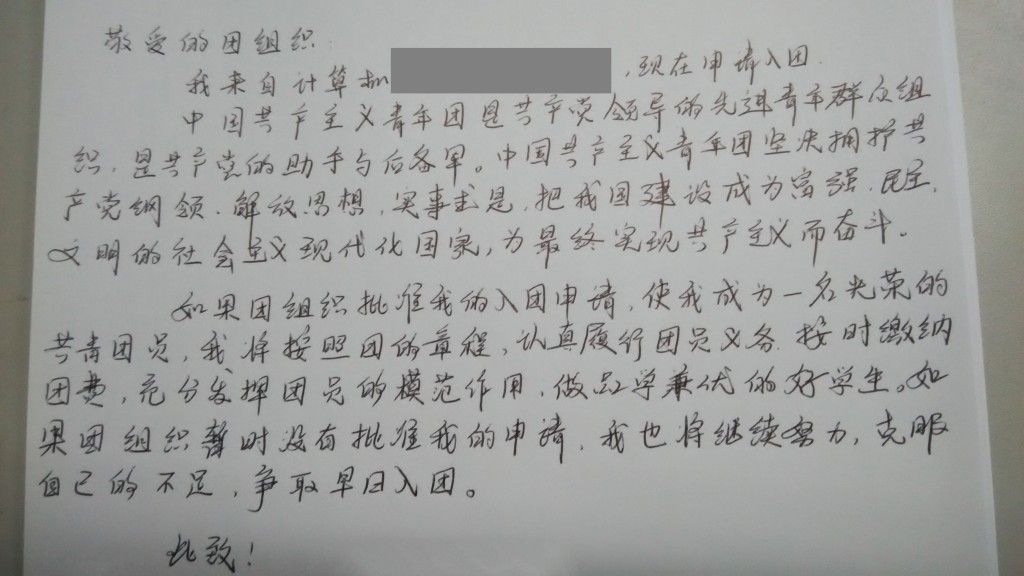 敬爱的团组织:
我来自计算机 ,现在申请入团.
中国共产主义青年团是共产党领导的先进青年群众组
织,是共产党的助手与后备军。中国共产主义青年团坚决拥护共
产党纲领.解放思想,实事求是,把我国建设成为富强.民主.
文明的社会主义现代化国家,为最终实现共产主义而奋斗。
如果团组织批准我的入团申请,使我成为一名光荣的
共青团员,我将按照团的章程,认真履行团员义务.按时缴纳
团费,充分发挥团员的模范作用,做品学兼优的好学生。如
果团组织暂时没有批准我的申请,我也将继续努力,克服
自己的不足,争取早日入团。
此致!